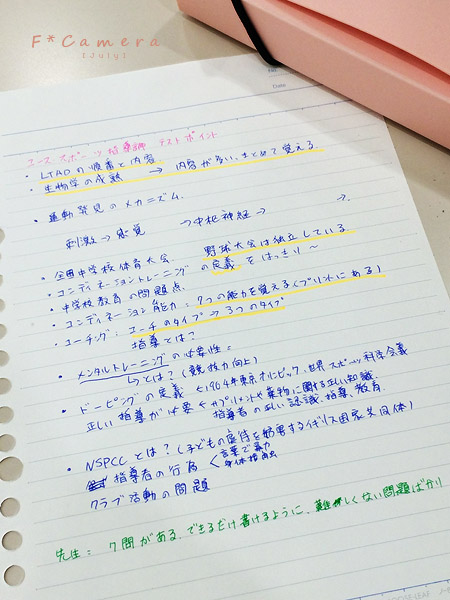 F*Camera
:July:
ユーススポーツ指導論 テストポイント
・LTADの順番と内容.
・生物学の成熟 → 内容が多い、まとめて覚える.
・運動発見のメカニズム.
刺激→感覚 →中枢神経→ →.
・全国中学校体育大会. 野球大会は独立している.
・コンディネーショントレーニングの定義をはっきり〜
・中学校教育の問題点.
・コンディネーション能力:7つの能力を覚える(プリントにある)
・コーチング:コーチのタイプ→3つのタイプ
指導とは?
・メンタルトレーニングの必要性=
↳とは?(競技力向上)
・ドーピングの定義 <1964年東京オリンピック、世界スポーツ科学会義
正しい指導が必要<サプリメントや薬物に関する正しい知識、
指導者の正しい認識、指導、教育.
・NSPCCとは?(子どもの虐待を防害するイギリス国家共同体)
指導者の行為<言葉で暴力
身体接触
クラブ活動の問題
先生= 7問がある、できるだけ書けるように、難しくない問題ばかり